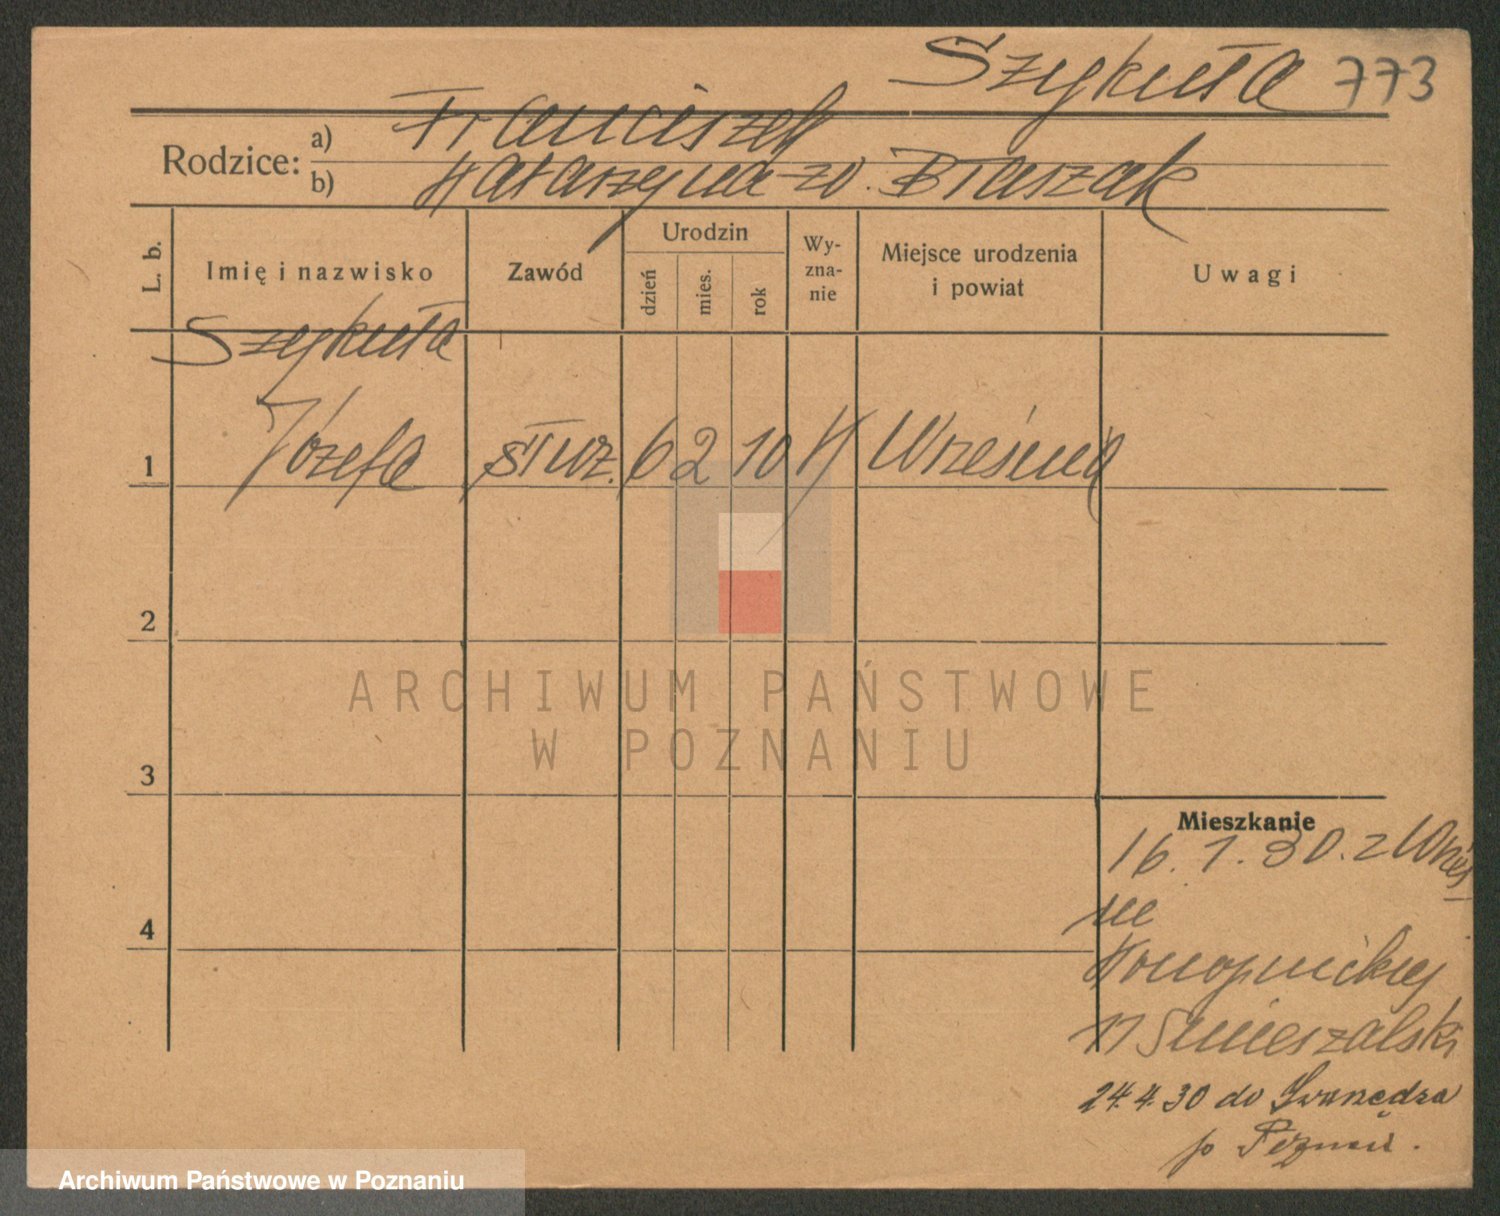 Szykuła 773
Rodzice:
a) Franciszek
b) Katarzyna zd. Błaszak
L. b.
Imię i nazwisko
Zawód
Urodzin
dzień
mies.
rok
Wy-
zna-
nie
Miejsce urodzenia
i powiat
Uwagi
Szykuła
1 Józefa służ. 6 2 10 K Września
2
3
4
Mieszkanie
16. 1. 30. z Wrześ
nie
Konopnickiej
11 Smieszalski
24.4.30 do Swarzędza
p Pozn
ARCHIWUM PAŃSTWOWE
W POZNANIU
Archiwum Państwowe w Poznaniu